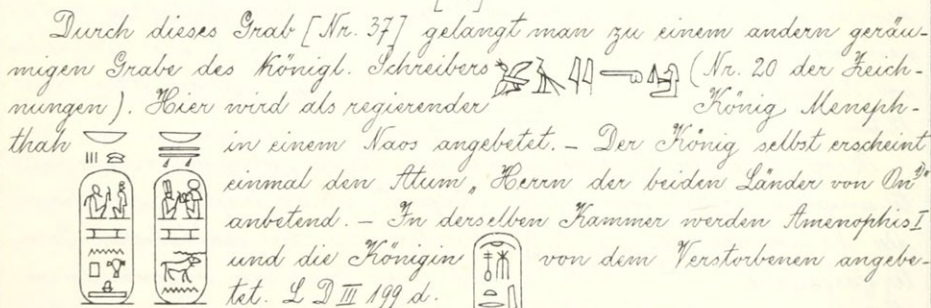 Durch dieses Grab [Nr. 37] gelangt man zu einem andern geräu-
migen Grabe des Königl. Schreibers (Nr. 20 der Zeich-
nungen). Hier wird als regierender König Meneph-
thah in einem Naos angebetet. – Der König selbst erscheint
einmal den Atum „Herrn der beiden Länder von On“
anbetend. – In derselben Kammer werden Amenophis I
und die Königin von dem Verstorbenen angebe-
tet. L D III 199 d.